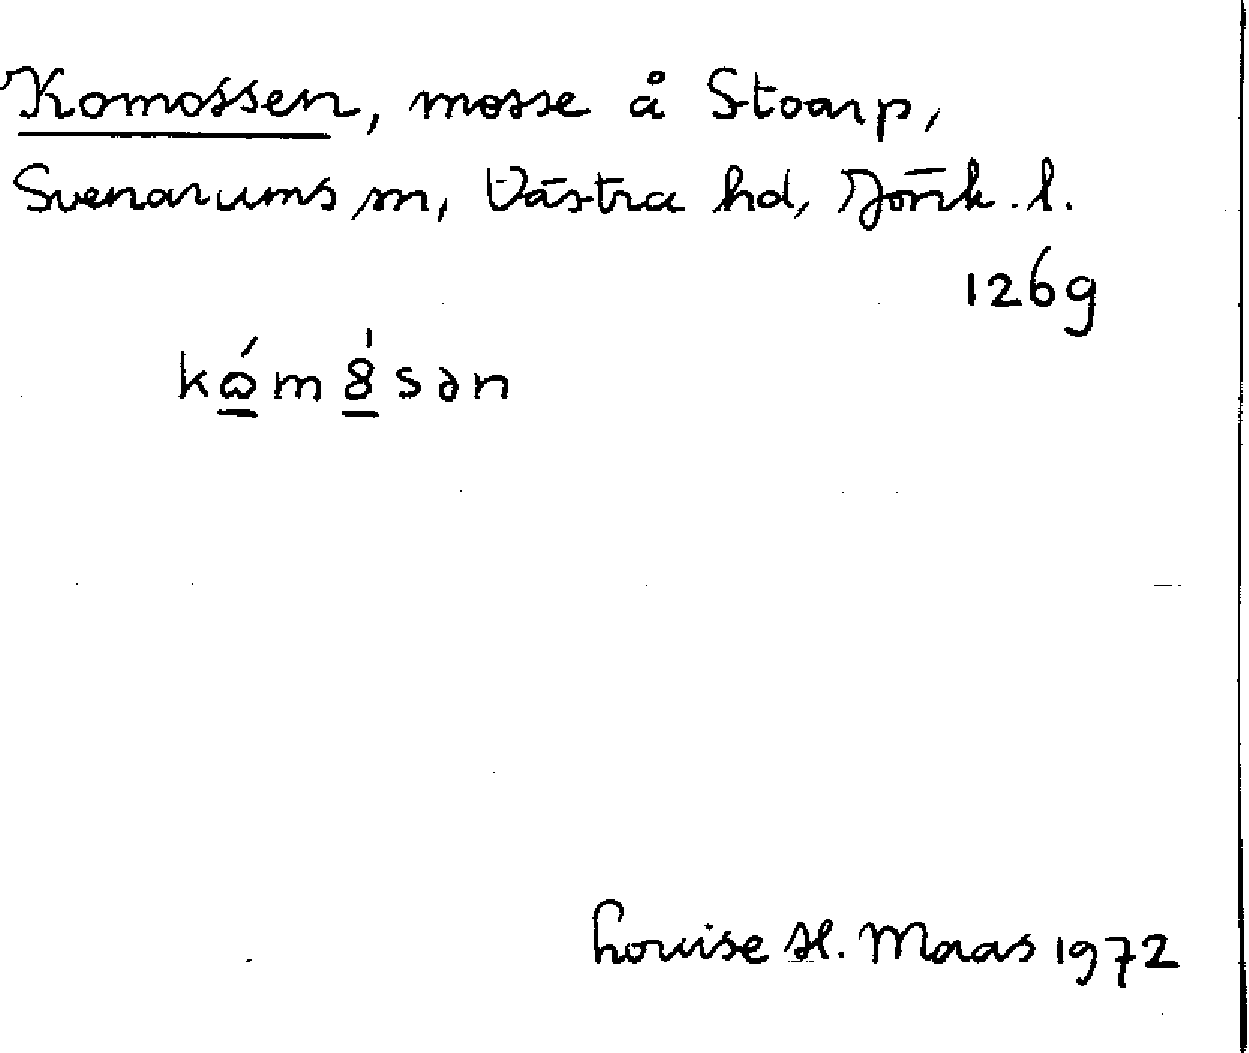 Komossen, mosse å Stoarp,
Svenarums sn, Västra hd, Jönk. l.
126g
Louise H. Maas 1972